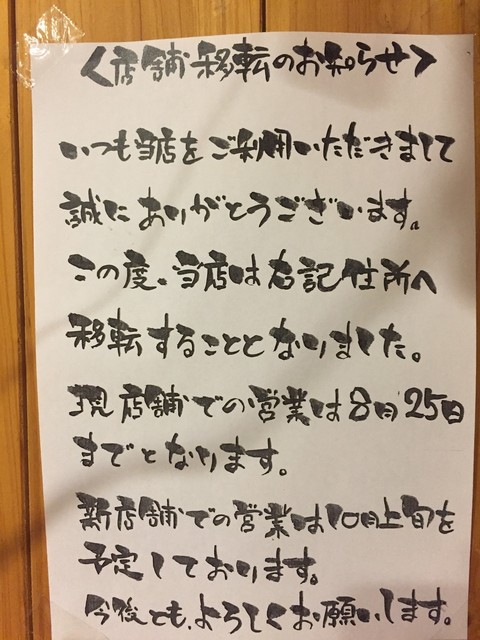 ＜店舗移転のお知らせ＞
いつも当店をご利用いただきまして
誠にありがとうございます。
この度、当店は右記住所へ
移転することとなりました。
現店舗での営業は8月25日
までとなります。
新店舗での営業は10月上旬を
予定しております。
今後とも、よろしくお願いします。